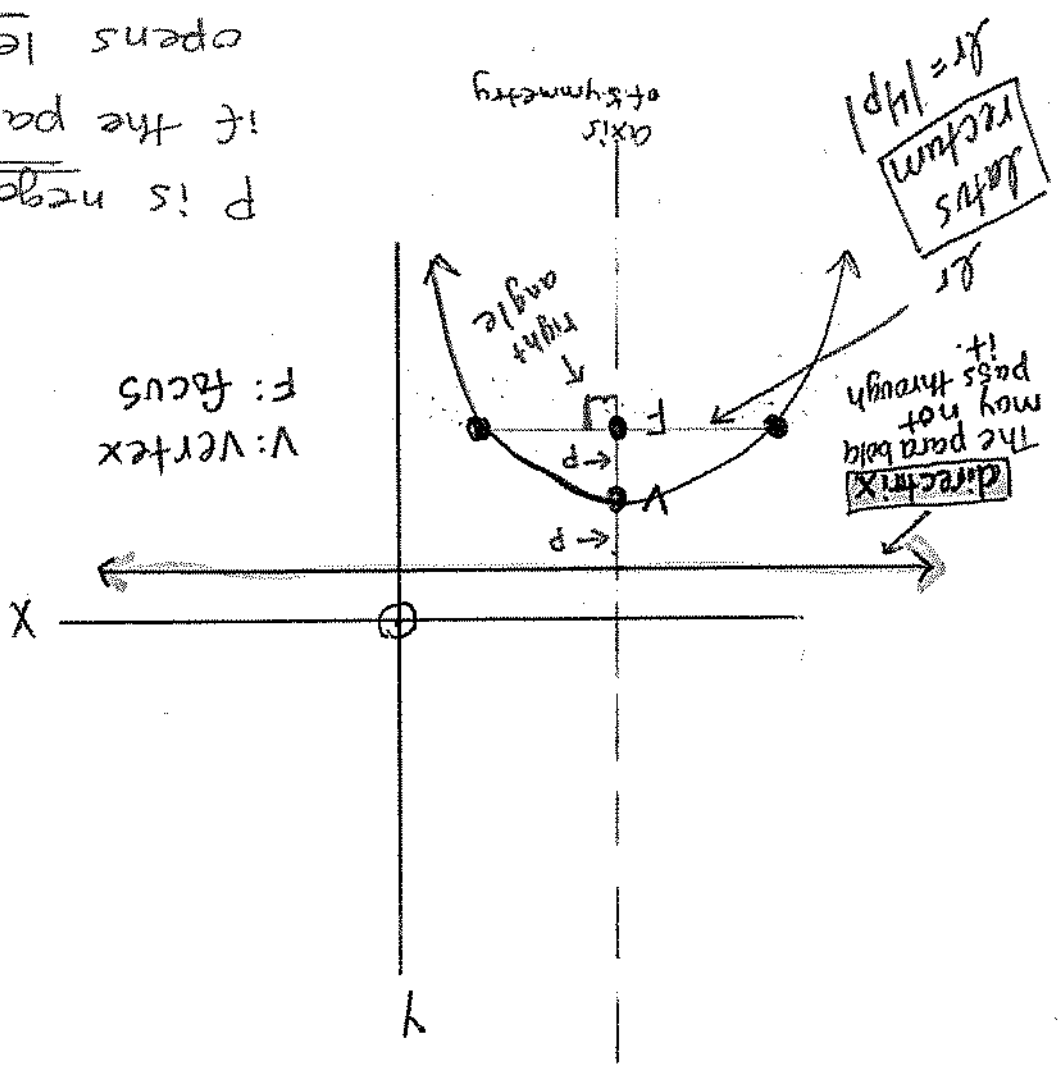 Y
X
directrix
The parabola
may not
pass through
it.
p
V
p
F
V: vertex
F: focus
right
angle
lr
latus
rectum
lr = |4p|
axis
of symmetry
P is nega
if the pa
opens le